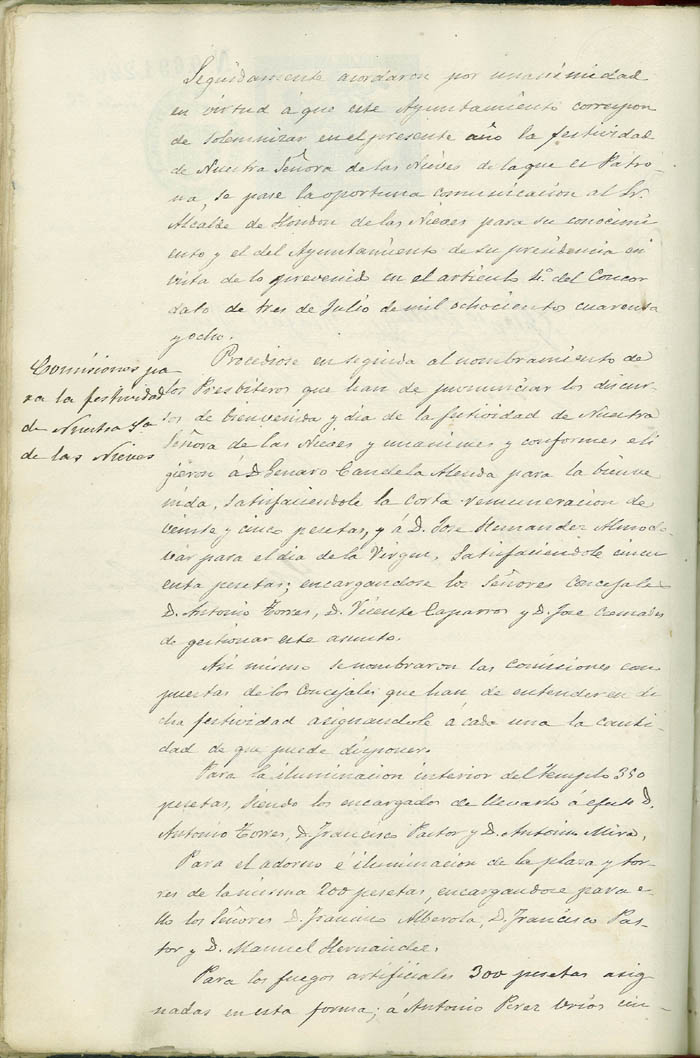 Seguidamente acordaron por unanimidad
en virtud á que este Ayuntamiento correspon
de solemnizar en el presente año la festividad
de Nuestra Señora de las Nieves de la que es Patro-
na, se pase la oportuna comunicacion al Sr.
Alcalde de Hondon de las Nieves para su conocimi
ento y el del Ayuntamiento de su presidencia en
vista de lo prevenido en el articulo 4º. del Concor
dato de tres de Julio de mil ochocientos cuarenta
y ocho.
Comisiones pa
ra la festividad
de Nuestra Sra
de las Nieves
Procediose en seguida al nombramiento de
los Presbiteros que han de pronunciar los discur-
sos de bienvenida y dia de la festividad de Nuestra
Señora de las Nieves y unanimes y conformes eli
gieron á D. Genaro Candela Alenda para la bienve
nida, satisfaciendole la corta remuneracion de
veinte y cinco pesetas, y á D. Jose Hernandez Almodo-
var para el dia de la Virgen, satisfaciendole cincu
enta pesetas; encargandose los Señores Concejales
D. Antonio Torres, D. Vicente Caparros y D. Jose Cremades
de gestionar este asunto.
Asi mismo se nombraron las comisiones com
puestas de los Concejales que han de entender en di
cha festividad asignandole á cada una la canti-
dad de que puede disponer.
Para la iluminacion interior del Templo 350
pesetas, siendo los encargados de llevarlo á efecto D.
Antonio Torres, D. Francisco Pastor y D. Antonio Mira,
Para el adorno é iluminacion de la plaza y tor-
res de la misma 200 pesetas, encargandose para e-
llo los Señores D. Francisco Alberola, D. Francisco Pas-
tor y D. Manuel Hernandez.
Para los fuegos artificiales 300 pesetas asig
nadas en esta forma; á Antonio Perez Brios cin-